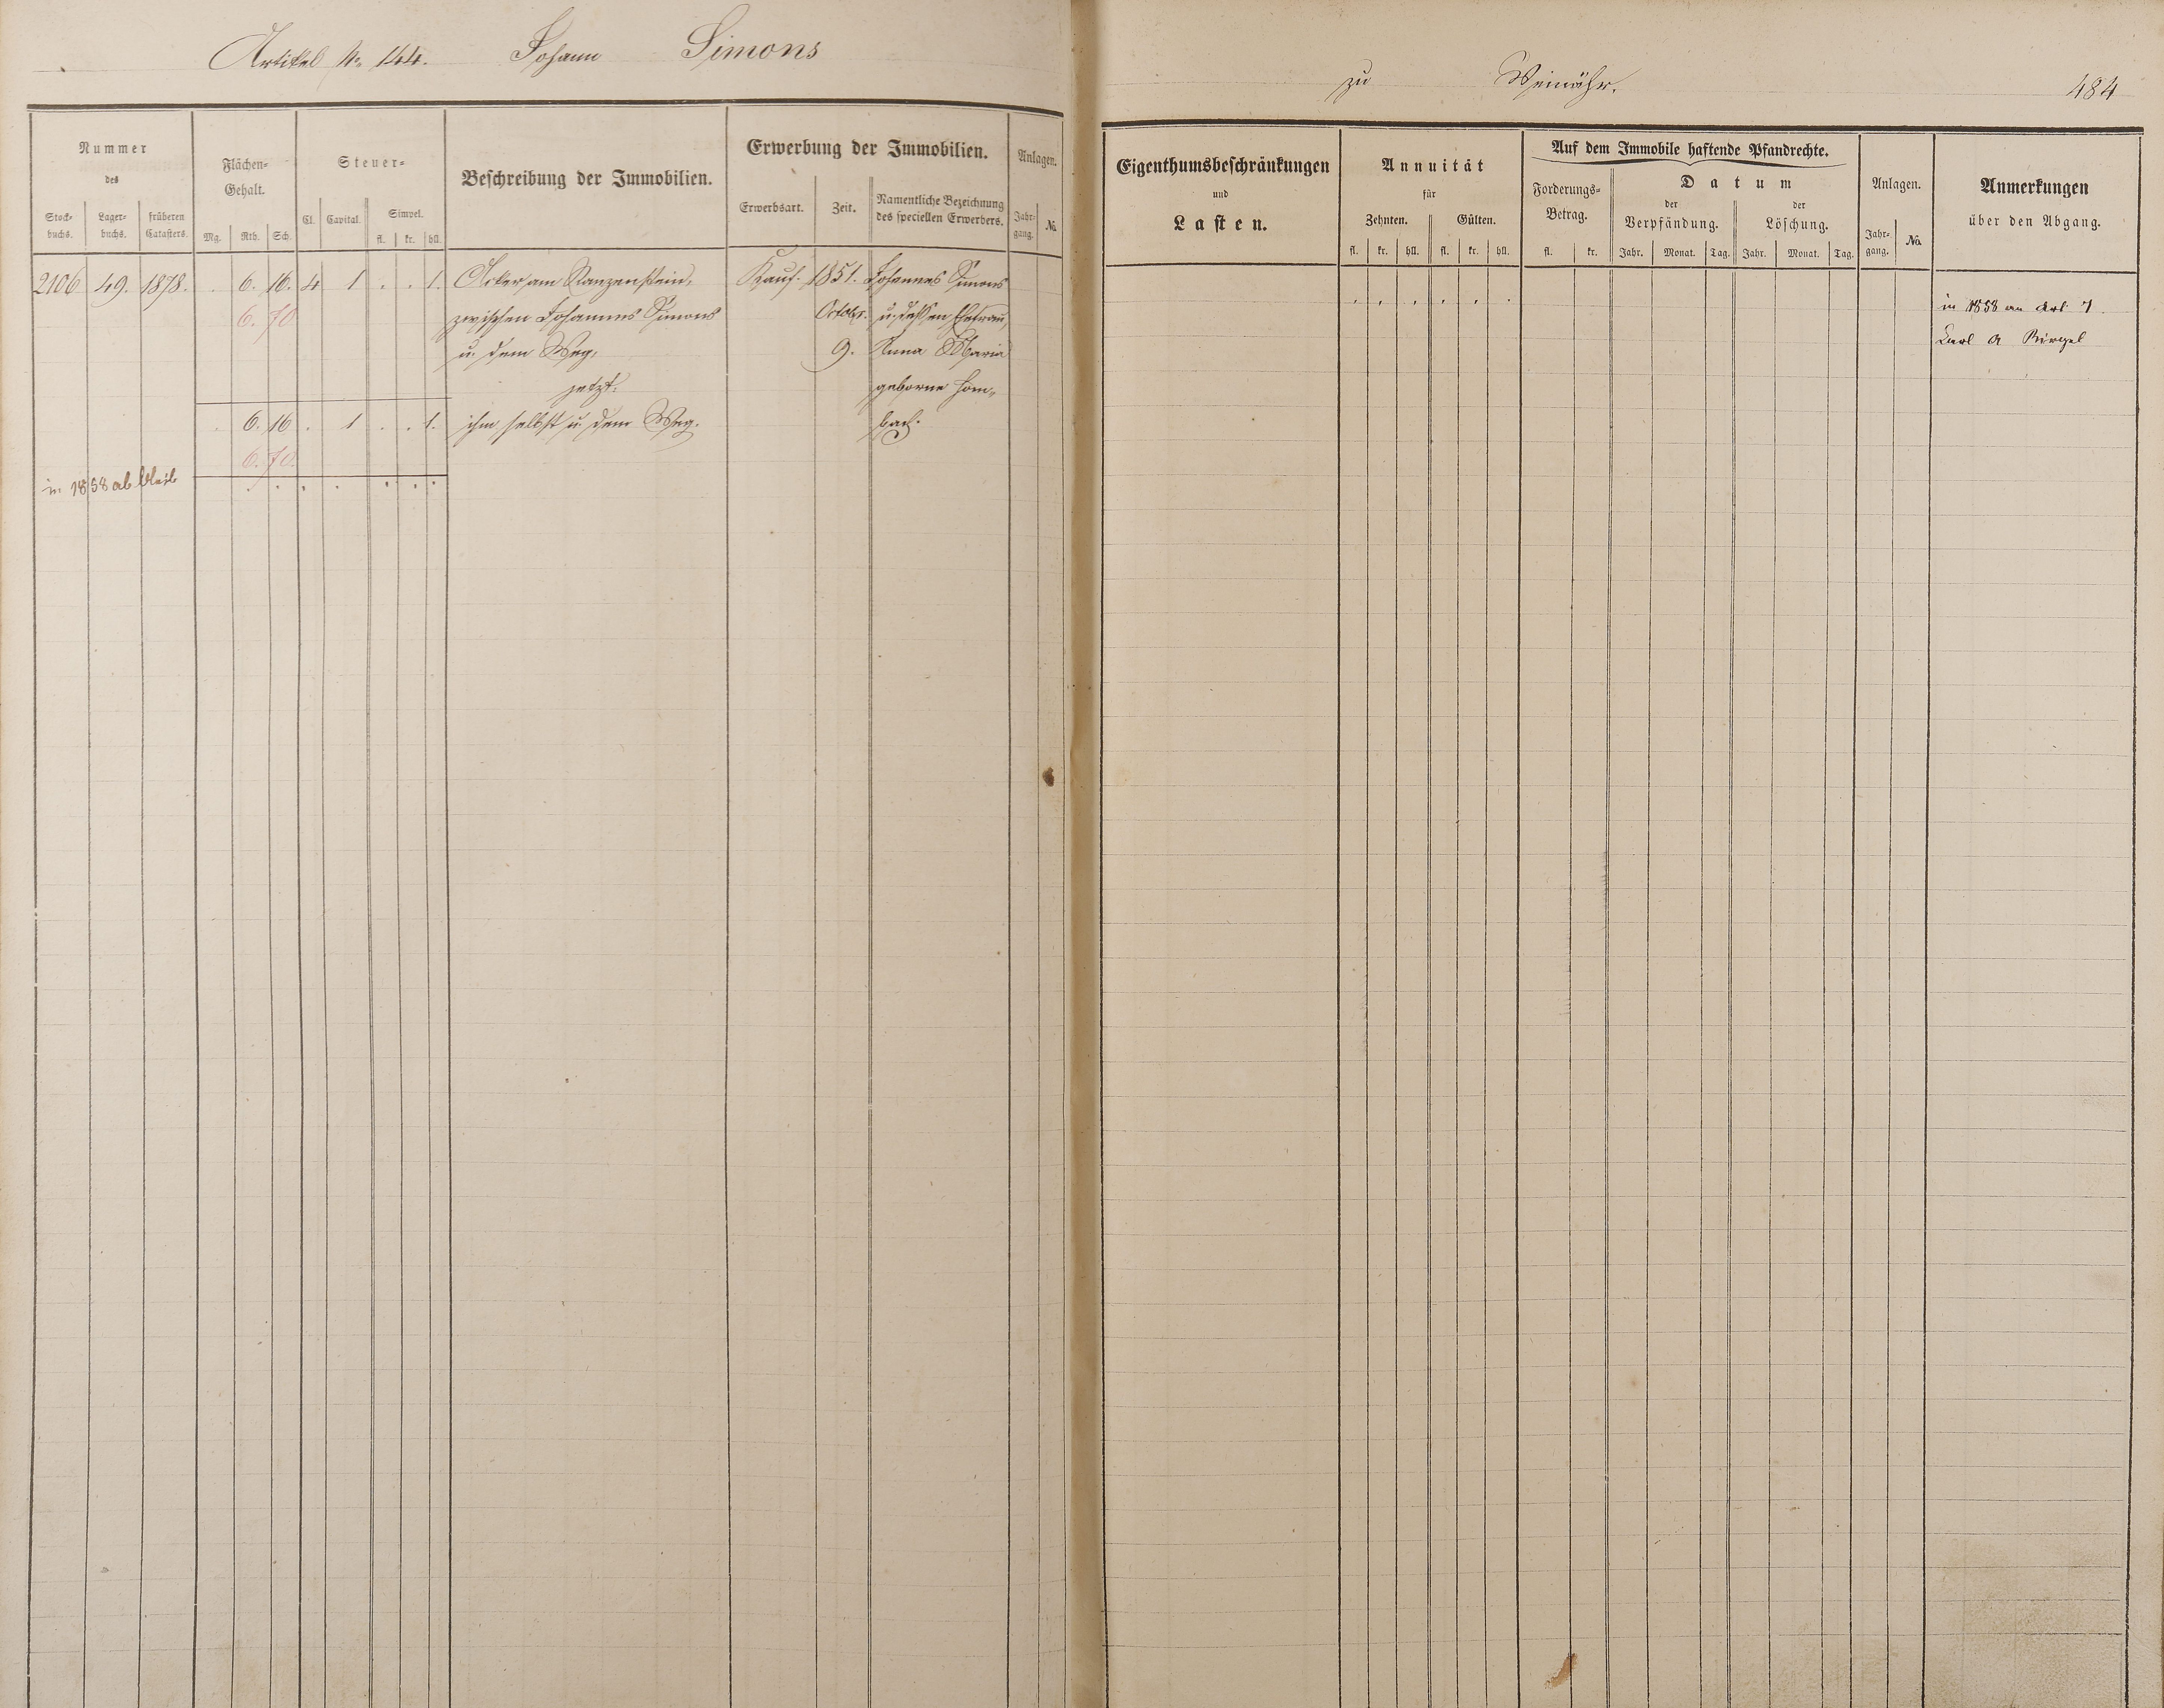 Artikel No. 144. Johann Simons
zu Weinähr. 484
Nummer
des
Stock-
buchs.
Lager-
buchs.
früheren
Catasters.
Flächen-
Gehalt.
Mg. Rth. Sch.
Steuer-
Cl. Capital. Simpel.
fl. kr. hll.
Beschreibung der Immobilien.
Erwerbung der Immobilien.
Erwerbsart. Zeit.
Namentliche Bezeichnung
des speciellen Erwerbers.
Anlagen.
Jahr-
gang.
No.
2106 49. 1878. . 6. 16. 4 1 . . 1. Acker am Ranzenstein, Kauf. 1851. Johannes Simons
6. 70 zwischen Johannes Simons Octobr. u. dessen Ehefrau,
u. dem Weg, 9. Anna Maria
jetzt: geborne Hom-
. 6. 16 . 1 . . 1. ihm selbst u. dem Weg. bach.
6. 70.
in 1858 ab bleib . . . . . . .
Eigenthumsbeschränkungen
und
Lasten.
Annuität
für
Zehnten. Gülten.
fl. kr. hll. fl. kr. hll.
Auf dem Immobile haftende Pfandrechte.
Forderungs-
Betrag.
fl. kr.
Datum
der
Verpfändung.
der
Löschung.
Jahr. Monat. Tag. Jahr. Monat. Tag.
Anlagen.
Jahr-
gang.
No.
Anmerkungen
über den Abgang.
. . . . . .
in 1858 an Art 7.
Carl A Birgel